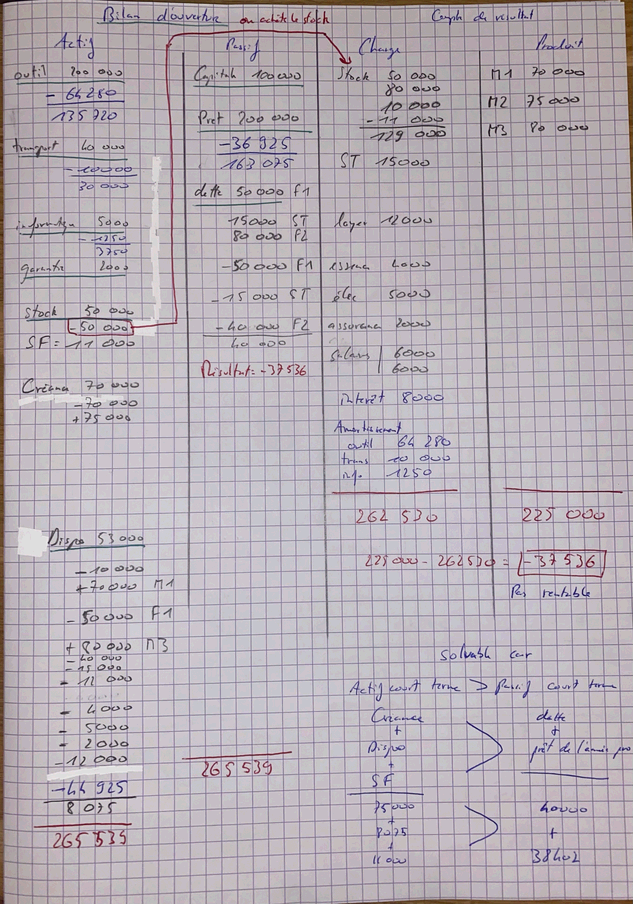 Bilan d'ouverture
on achète le stock
Compte de résultat
Actif
outil 200 000
- 64 280
135 720
transport 40 000
- 10000
30 000
informatique 5000
- 1250
3750
garantie 2000
stock 50 000
- 50 000
SF = 11 000
Créance 70 000
- 70 000
+ 75 000
Dispo 53 000
- 10 000
+ 70000 M1
- 50 000 F1
+ 80 000 M3
- 40 000
- 15 000
- 12 000
- 4000
- 5000
- 2000
- 12 000
- 44 925
8 075
265 539
Passif
Capitale 100 000
Prêt 200 000
- 36 925
163 075
dette 50 000 F1
15000 ST
80 000 F2
- 50 000 F1
- 15 000 ST
- 40 000 F2
40 000
Résultat = -37 536
265 539
Charge
Stock 50 000
80 000
10 000
- 11 000
129 000
ST 15000
loyer 12000
essence 4000
élec 5000
assurance 2000
salaires 6000
6000
interêt 8000
Amortissement
outil 64 280
trans 10 000
info. 1250
262 530
Produit
M1 70 000
M2 75 000
M3 80 000
225 000
225 000 - 262530 = -37 536
Pas rentable
Solvable car
Actif court terme > Passif court terme
Créance
+
Dispo
+
SF
75000
+
8075
+
11 000
dette
+
prêt de l'année pro
40000
+
38402